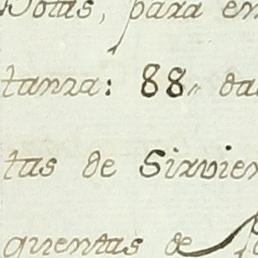 Botas, para en
tanza: 88,, da
tas de Sirvien
quentas de